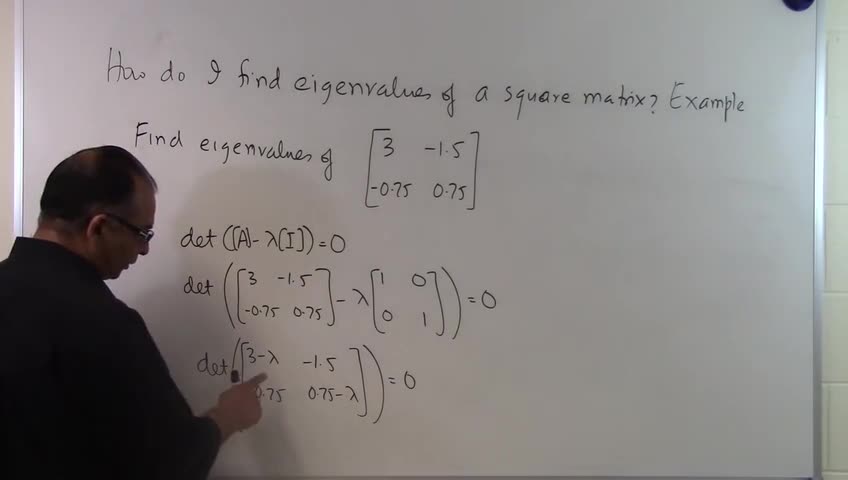 How do I find eigenvalues of a square matrix? Example
Find eigenvalues of [3 -1.5
-0.75 0.75]
det([A]-λ[I])=0
det([3 -1.5
-0.75 0.75]-λ[1 0
0 1])=0
det([3-λ -1.5
0.75 0.75-λ])=0